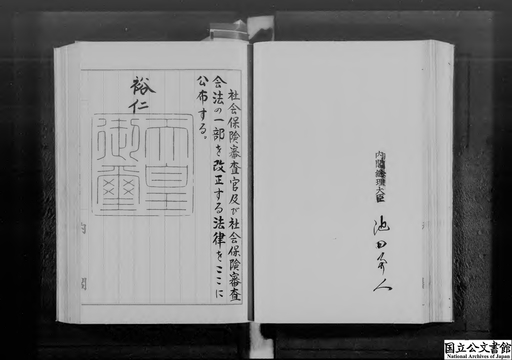 社会保険審査官及び社会保険審査
会法の一部を改正する法律をここに
公布する。
裕仁
天皇
御璽
内閣総理大臣 池田勇人
国立公文書館
National Archives of Japan